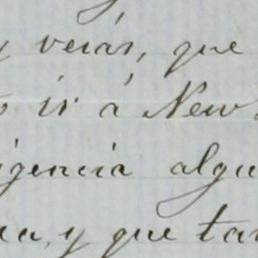 y verás, que
ir á New
igencia algu
ea, y que tan